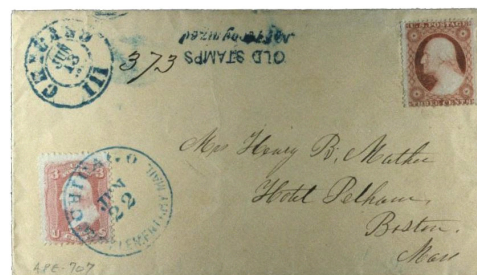 CHICAGO Ill
JUN
13
373
OLD STAMPS
not recognized
U.S. POSTAGE
THREE CENTS
Mrs Henry B. Mather
Hotel Pelham,
Boston.
Mass
CHICAGO
JUN
22
SUPPLEMENTARY MAIL
3 3
APE-707